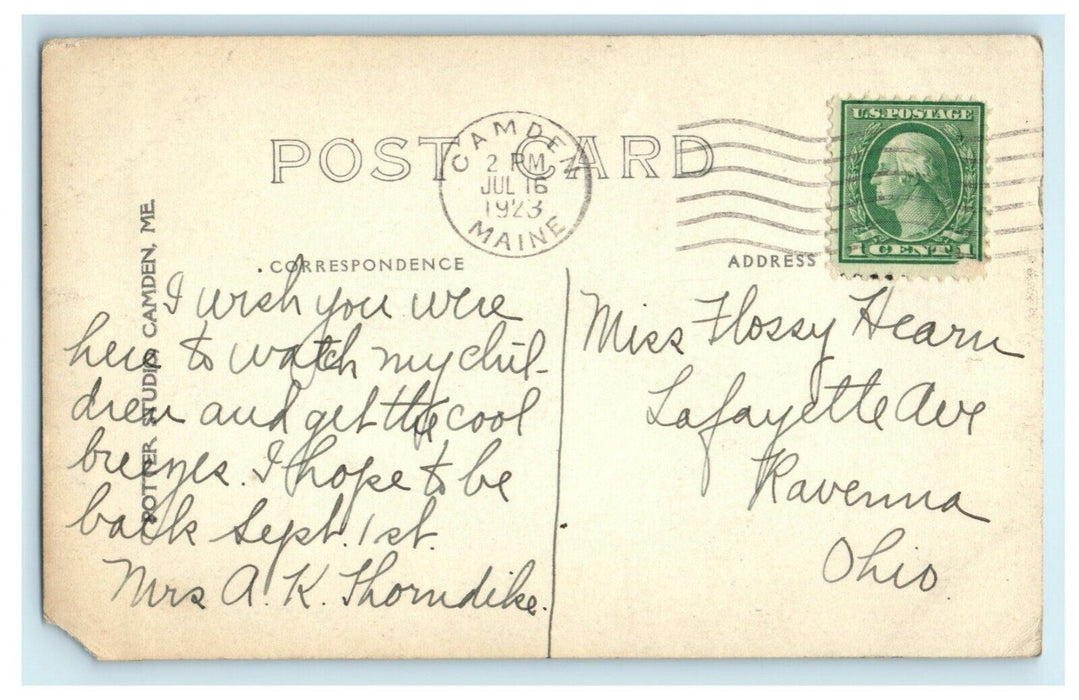 POST CARD
CAMDEN
2 PM
JUL 16
1923
MAINE
U.S. POSTAGE
1 CENT 1
CORRESPONDENCE
ADDRESS
POTTER STUDIO CAMDEN, ME.
I wish you were
here to watch my chil-
dren and get the cool
breezes. I hope to be
back Sept. 1st.
Mrs A. K. Thorndike.
Miss Flossy Hearn
Lafayette Ave
Ravenna
Ohio